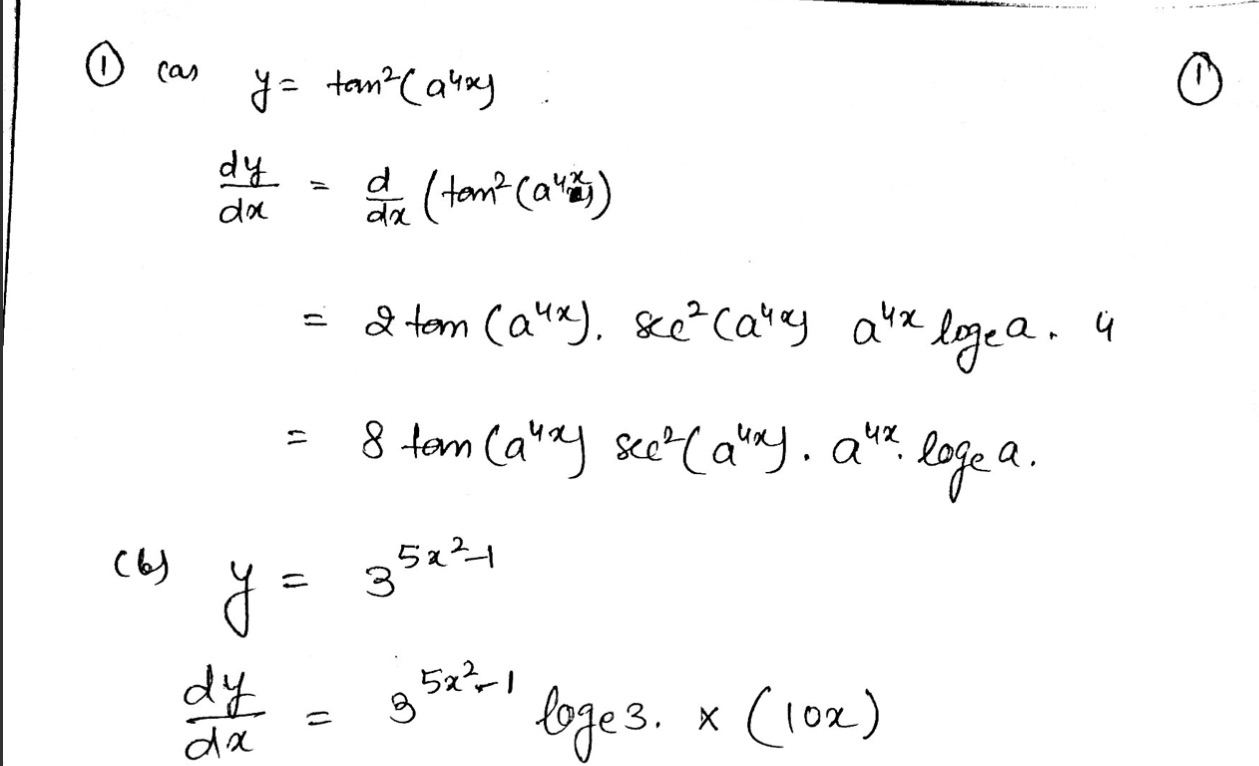 ① (a) y = tan²(a⁴ˣ) ①
dy/dx = d/dx (tan²(a⁴ˣ))
= 2 tan (a⁴ˣ). sec²(a⁴ˣ) a⁴ˣ logₑa. 4
= 8 tan (a⁴ˣ) sec²(a⁴ˣ). a⁴ˣ. logₑa.
(b) y = 3^(5x²-1)
dy/dx = 3^(5x²-1) logₑ3. × (10x)